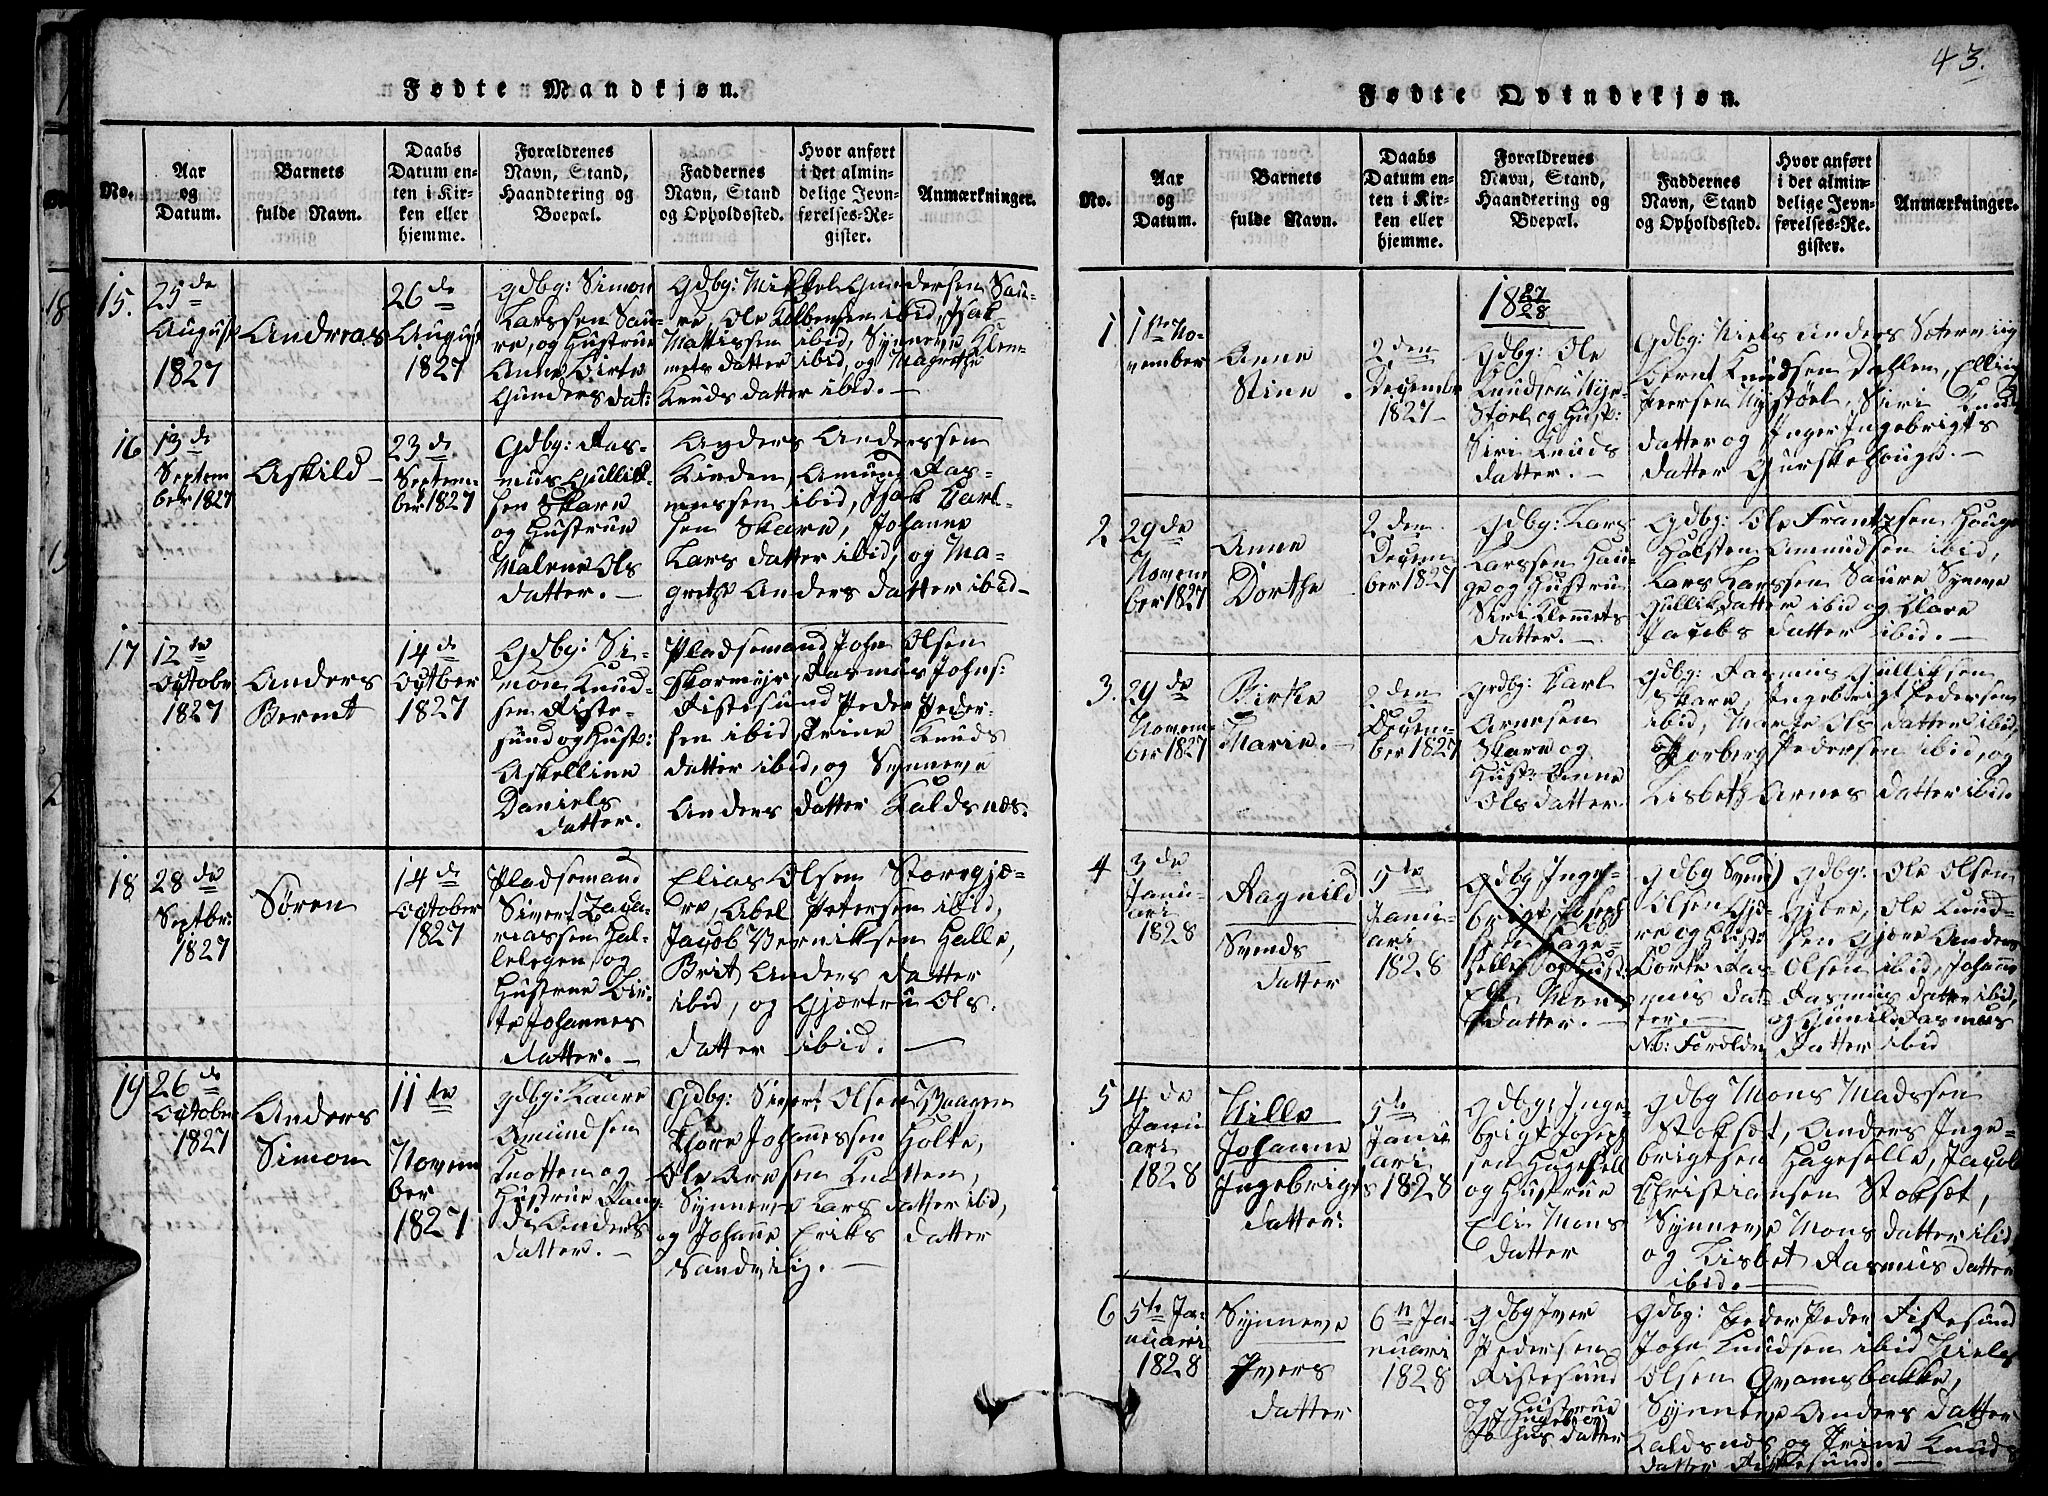 43.
Fødte Mandkjøn.
No.
Aar
og
Datum.
Barnets
fulde Navn.
Daabs
Datum en-
ten i Kir-
ken eller
hjemme.
Forældrenes
Navn, Stand,
Haandtering og
Boepæl.
Faddernes
Navn, Stand
og Opholdssted.
Hvor anført
i det almin-
delige Jevn-
førelses-Re-
gister.
Anmærkninger.
15.
25de
August
1827
Andreas
26de
August
1827
Gdbg: Simon
Larssen Sau-
re, og Hustrue
Anne Birte
Gunders dat:
Gdbg: Mikkel Gundersen Sau-
re, Ole Kolbensen ibid, Isak
Mattissen ibid, Synneve Klem-
mets datter ibid, og Magrethe
Knuds datter ibid. —
16
13de
Septem
ber 1827
Askild —
23de
Septem-
ber 1827
Gdbg: Ras-
mus Gullik-
sen Skare
og Hustrue
Malene Ols
datter. —
Anders Anderssen
Kinden, Amund Ras-
mussen ibid, Isak Karl-
sen Skare, Johanne
Lars datter ibid, og Ma-
grethe Anders datter ibid —
17
12te
Octobr
1827
Anders
Bernt
14de
Octber
1827
Gdbg: Si-
mon Knud-
sen Riste-
sund og Hust:
Askelline
Daniels
datter.
Pladsemand John Olsen
Skormyr, Rasmus Johns:
Ristesund Peder Peder-
sen ibid, Trine Knuds
datter ibid, og Synneve
Anders datter Kaldsnæs.
18
28de
Septbr.
1827
Søren
14de
October
1827
Pladsemand
Sivert Zaca-
riassen Hal-
lelegen og
Hustrue Bir-
te Johannes
datter. —
Elias Olsen Storegjæ-
re, Abel Petersen ibid,
Jacob Berniksen Halle,
Brit Anders datter
ibid, og Gjærtru Ols.
datter ibid. —
19
26de
October
1827
Anders
Simon
11te
Novem
ber
1827
Gdbg: Laure
Amundsen
Knotten og
Hustrue Rang-
di Anders
datter. —
Gdbg: Sivert Olsen Vaagen
Thore Johannessen Holte,
Ole Aresen Knotten,
Synneve Lars datter ibid,
og Johane Eriks datter
Sandvig. —
Fødte Qvindekjøn.
No.
Aar
og
Datum.
Barnets
fulde Navn.
Daabs
Datum en-
ten i Kir-
ken eller
hjemme.
Forældrenes
Navn, Stand,
Haandtering og
Boepæl.
Faddernes
Navn, Stand
og Opholdssted.
Hvor anført
i det almin-
delige Jevn-
førelses-Re-
gister.
Anmærkninger.
18 27/28
1
1ste No-
vember
Anne
Stine
2den
December
1827
Gdbg: Ole
Knudsen Myr-
støel og Hust:
Siri Knuds
datter. —
Gdbg: Niels Anders Sætervig
Bernt Knudsen Dallen, Elling
Peersen Nystøel, Siri Knuds
datter og Inger Ingebrigts
datter Gurskehouge. —
2.
29de
Novem
ber 1827
Anne
Dorthe
2den
Decem
ber 1827
Gdbg: Lars
Larssen Hau-
ge og Hustru
Siri Klemmets
datter. —
Gdbg: Ole Frantzsen Houge
Holsten Amundsen ibid,
Lars Larssen Saure Synve
Gulliks datter ibid og Klare
Jacobs datter ibid. —
3.
29de
Novem-
ber 1827
Birthe
Marie. —
2den
Decem-
ber 1827
Gdbg: Karl
Arnesen
Skare og
Hust: Anne
Ols datter.
Gdbg: Rasmus Gulliksen
Skare, Ingebrigt Pedersen
ibid, Marte Ols datter ibid,
Thorberg Pedersen ibid, og
Lisbeth Arnes datter ibid.
4
3de
Janu-
ari
1828
Ragnild
Svends
datter
5te
Janu-
ari
1828
Gdbg Inge-
brigt Joseph
sen Hage-
selle og Hust:
Eli Mons
datter. —
Gdbg Svend
Olsen Gjø-
re og Hust:
Dorte Ras-
mus dat-
ter. —
Nb: Foreldre
Gdbg: Ole Olsen
Gjøre, Ole Knud-
sen Gjøre Anders
Olsen ibid, Johanne
Rasmus datter ibid,
og Gunild Rasmus
datter ibid
5
4de
Janu
ari
1828
Nille
Johanne
Ingebrigts
datter.
5te
Janu
ari
1828
Gdbg, Inge-
brigt Joseph
sen Hageselle
og Hustrue
Eli Mons
datter
Gdbg Mons Madssen
Stokset, Anders Inge-
brigtsen Hageselle, Jacob
Christiansen Stokset,
Synneve Mons datter ibid
og Lisbet Rasmus datter
ibid. —
6
5te Ja-
nuari
1828
Synneve
Ivers
datter
6n Ja-
nuari
1828
Gdbg Iver
Pedersen
Ristesund
og Hustrue
Ingeborg
Johns datter
Gdbg: Peder Peder Ristesund
John Knudsen ibid Niels
Olsen Qvamsbakke,
Synneve Anders datter
Kaldsnæs og Trine Knuds
datter Ristesund. —